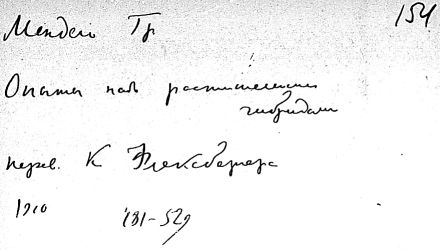 154
Мендель Гр
Опыты над растительными
гибридами
перев. К Флексбергера
1910